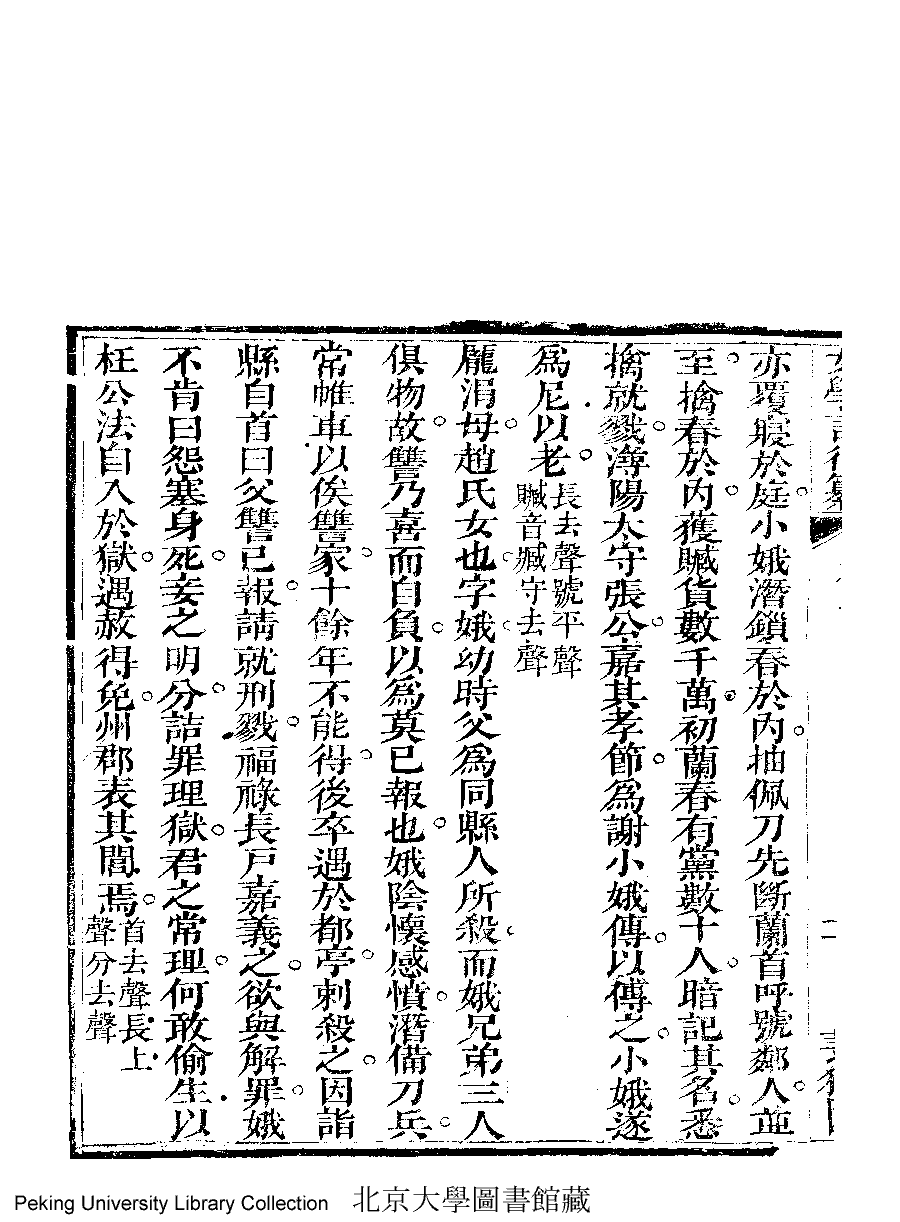 亦覆寢於庭小娥潛鎖春於內抽佩刀先斷蘭首呼號鄰人並
至擒春於內獲贓貨數千萬初蘭春有黨數十人暗記其名悉
擒就戮潯陽太守張公嘉其孝節為謝小娥傳以傳之小娥遂
為尼以老長去聲號平聲
贓音臧守去聲
龐涓母趙氏女也字娥幼時父為同縣人所殺而娥兄弟三人
俱物故讐乃喜而自負以為莫已報也娥陰懷感憤潛備刀兵
常帷車以俟讐家十餘年不能得後卒遇於都亭刺殺之因詣
縣自首曰父讐已報請就刑戮福祿長尹嘉義之欲與解罪娥
不肯曰怨塞身死妾之明分詰罪理獄君之常理何敢偷生以
枉公法自入於獄遇赦得免州郡表其閭焉首去聲長上
聲分去聲
Peking University Library Collection 北京大學圖書館藏